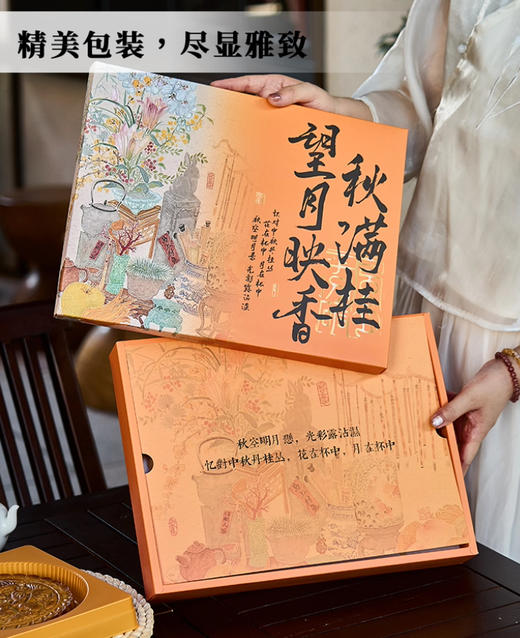 精美包装，尽显雅致
秋满桂
望月映香
忆对中秋丹桂丛
花在杯中 月在杯中
秋空明月悬 光彩露沾湿
秋空明月悬，光彩露沾湿
忆對中秋丹桂丛，花在杯中，月在杯中